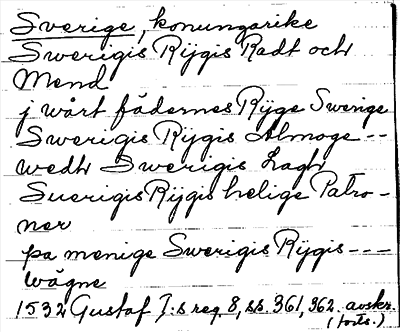 Sverige, konungarike
Swerigis Rijgis Radt och
Mend
j wårt fädernes Rijge Swerige
Swerigis Rijgis Almoge --
wedh Swerigis Lagh
Suerigis Rijgis helige Patro-
ner
pa menige Swerigis Rijgis ---
wägne
1532 Gustaf I:s reg. 8, ss. 361, 362. avskr.
(forts.)